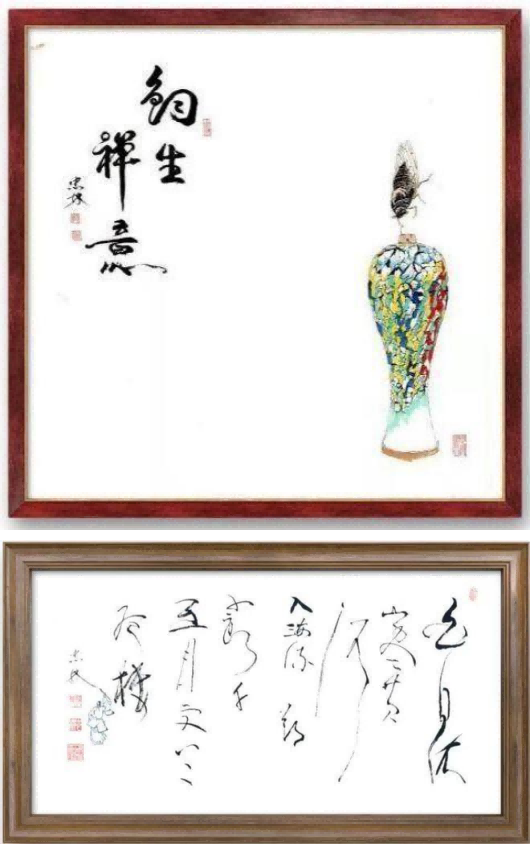 鈞生
禪意
忠林
白日依
山尽黄
河
入海流欲
穷千
里目更上一
层楼
忠林